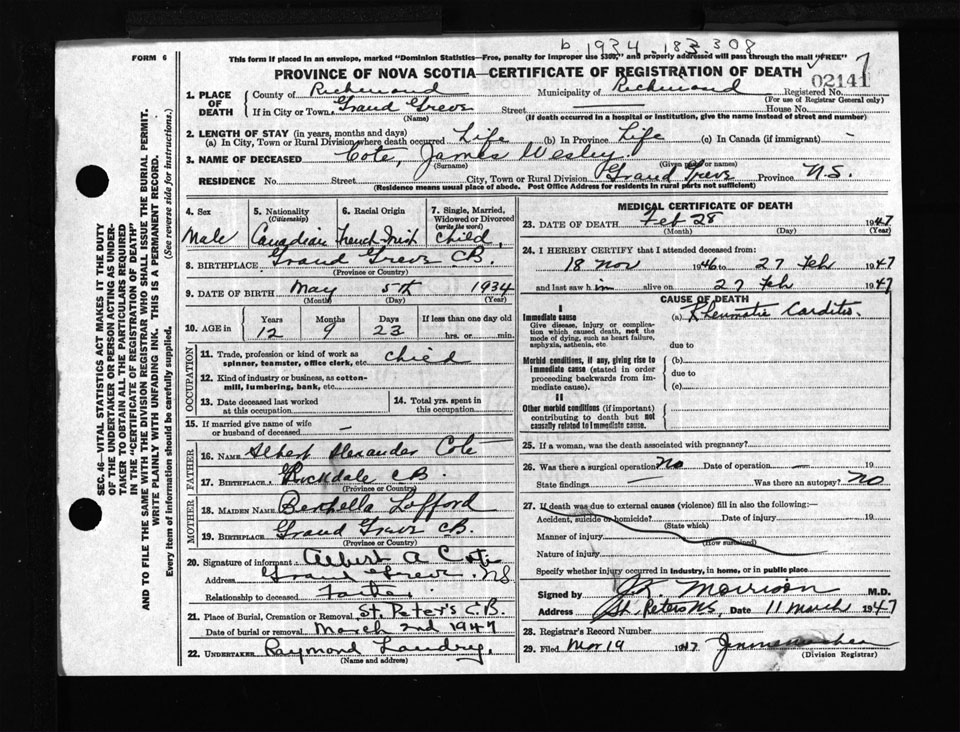 b 1934 - 183 308
FORM 6
This form if placed in an envelope, marked "Dominion Statistics—Free, penalty for improper use $300," and properly addressed will pass through the mail "FREE"
PROVINCE OF NOVA SCOTIA—CERTIFICATE OF REGISTRATION OF DEATH
02141
7
1. PLACE OF DEATH County of Richmond Municipality of Richmond Registered No.
(For use of Registrar General only)
If in City or Town Grand Greve Street House No.
(Name) (If death occurred in a hospital or institution, give the name instead of street and number)
2. LENGTH OF STAY (in years, months and days)
(a) In City, Town or Rural Division where death occurred Life (b) In Province Life (c) In Canada (if immigrant) -
3. NAME OF DECEASED Cote, James Wesley
(Surname) (Given name or names)
RESIDENCE No. Street City, Town or Rural Division Grand Greve Province N.S.
(Residence means usual place of abode. Post Office Address for residents in rural parts not sufficient)
4. Sex Male
5. Nationality (Citizenship) Canadian
6. Racial Origin French-Irish
7. Single, Married, Widowed or Divorced (write the word) child,
8. BIRTHPLACE Grand Greve C.B.
(Province or Country)
9. DATE OF BIRTH May 5th 1934
(Month) (Day) (Year)
10. AGE in Years Months Days If less than one day old
12 9 23 hrs. or min.
OCCUPATION
11. Trade, profession or kind of work as spinner, teamster, office clerk, etc. child
12. Kind of industry or business, as cotton-mill, lumbering, bank, etc.
13. Date deceased last worked at this occupation
14. Total yrs. spent in this occupation
15. If married give name of wife or husband of deceased —
FATHER
16. NAME Albert Alexander Cote
17. BIRTHPLACE Rockdale C.B.
(Province or Country)
MOTHER
18. MAIDEN NAME Berthella Lafford
19. BIRTHPLACE Grand Greve C.B.
(Province or Country)
20. Signature of informant Albert A Cote
Address Grand Greve. N.S.
Relationship to deceased Father.
21. Place of Burial, Cremation or Removal St. Peter's C.B.
Date of burial or removal March 2nd 1947
22. UNDERTAKER Raymond Landry.
(Name and address)
MEDICAL CERTIFICATE OF DEATH
23. DATE OF DEATH Feb 28 1947
(Month) (Day) (Year)
24. I HEREBY CERTIFY that I attended deceased from:
18 Nov 1946 to 27 Feb 1947
and last saw him alive on 27 Feb 1947
CAUSE OF DEATH
I
Immediate cause (a) Rheumatic Carditis.
Give disease, injury or complication which caused death, not the mode of dying, such as heart failure, asphyxia, asthenia, etc.
due to
Morbid conditions, if any, giving rise to immediate cause (stated in order proceeding backwards from immediate cause).
(b)
due to
(c)
II
Other morbid conditions (if important) contributing to death but not causally related to immediate cause.
25. If a woman, was the death associated with pregnancy?
26. Was there a surgical operation? No Date of operation — 19
State findings — Was there an autopsy? No
27. If death was due to external causes (violence) fill in also the following:—
Accident, suicide or homicide? Date of injury 19
(State which)
Manner of injury
(How sustained)
Nature of injury
Specify whether injury occurred in industry, in home, or in public place
Signed by J.K. Morrison M.D.
Address St. Peters N.S. Date 11 March 1947
28. Registrar's Record Number
29. Filed Mar 19 1947
(Division Registrar)
SEC. 46—VITAL STATISTICS ACT MAKES IT THE DUTY
OF THE UNDERTAKER OR PERSON ACTING AS UNDER-
TAKER TO OBTAIN ALL THE PARTICULARS REQUIRED
IN THE "CERTIFICATE OF REGISTRATION OF DEATH"
AND TO FILE THE SAME WITH THE DIVISION REGISTRAR WHO SHALL ISSUE THE BURIAL PERMIT.
WRITE PLAINLY WITH UNFADING INK. THIS IS A PERMANENT RECORD.
Every item of information should be carefully supplied. (See reverse side for instructions.)